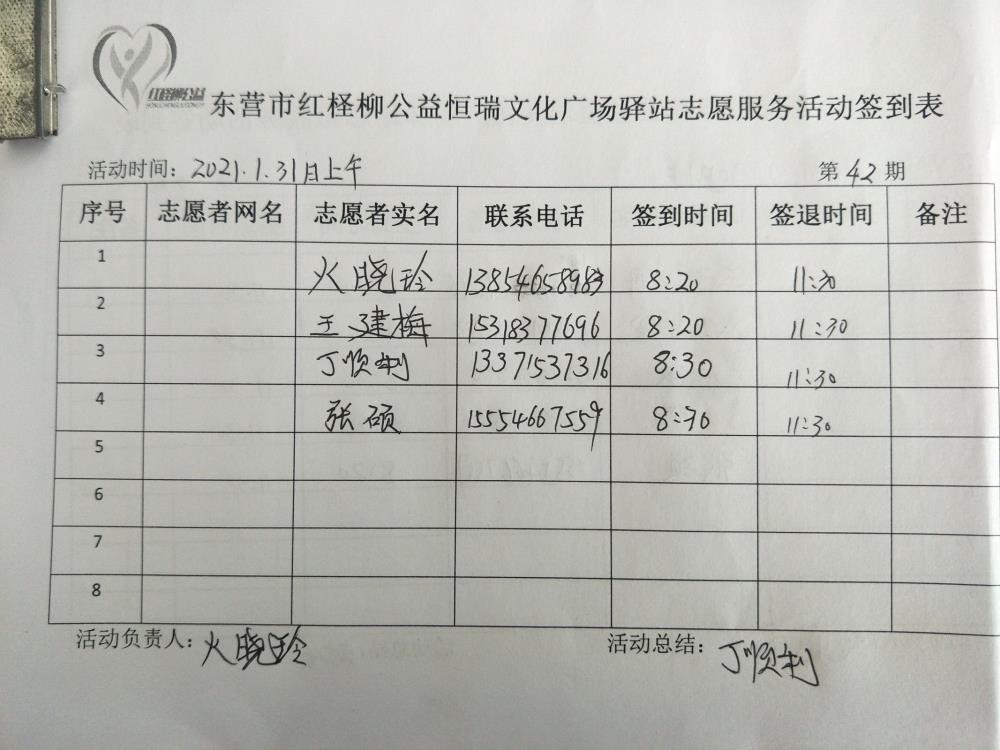 红柽柳公益
东营市红柽柳公益恒瑞文化广场驿站志愿服务活动签到表
活动时间：2021.1.31日上午 第42期
序号 志愿者网名 志愿者实名 联系电话 签到时间 签退时间 备注
1 火晓玲 13854658983 8:20 11:30
2 王建梅 15318377696 8:20 11:30
3 丁顺利 13371537316 8:30 11:30
4 张硕 15554667559 8:30 11:30
5
6
7
8
活动负责人：火晓玲 活动总结：丁顺利